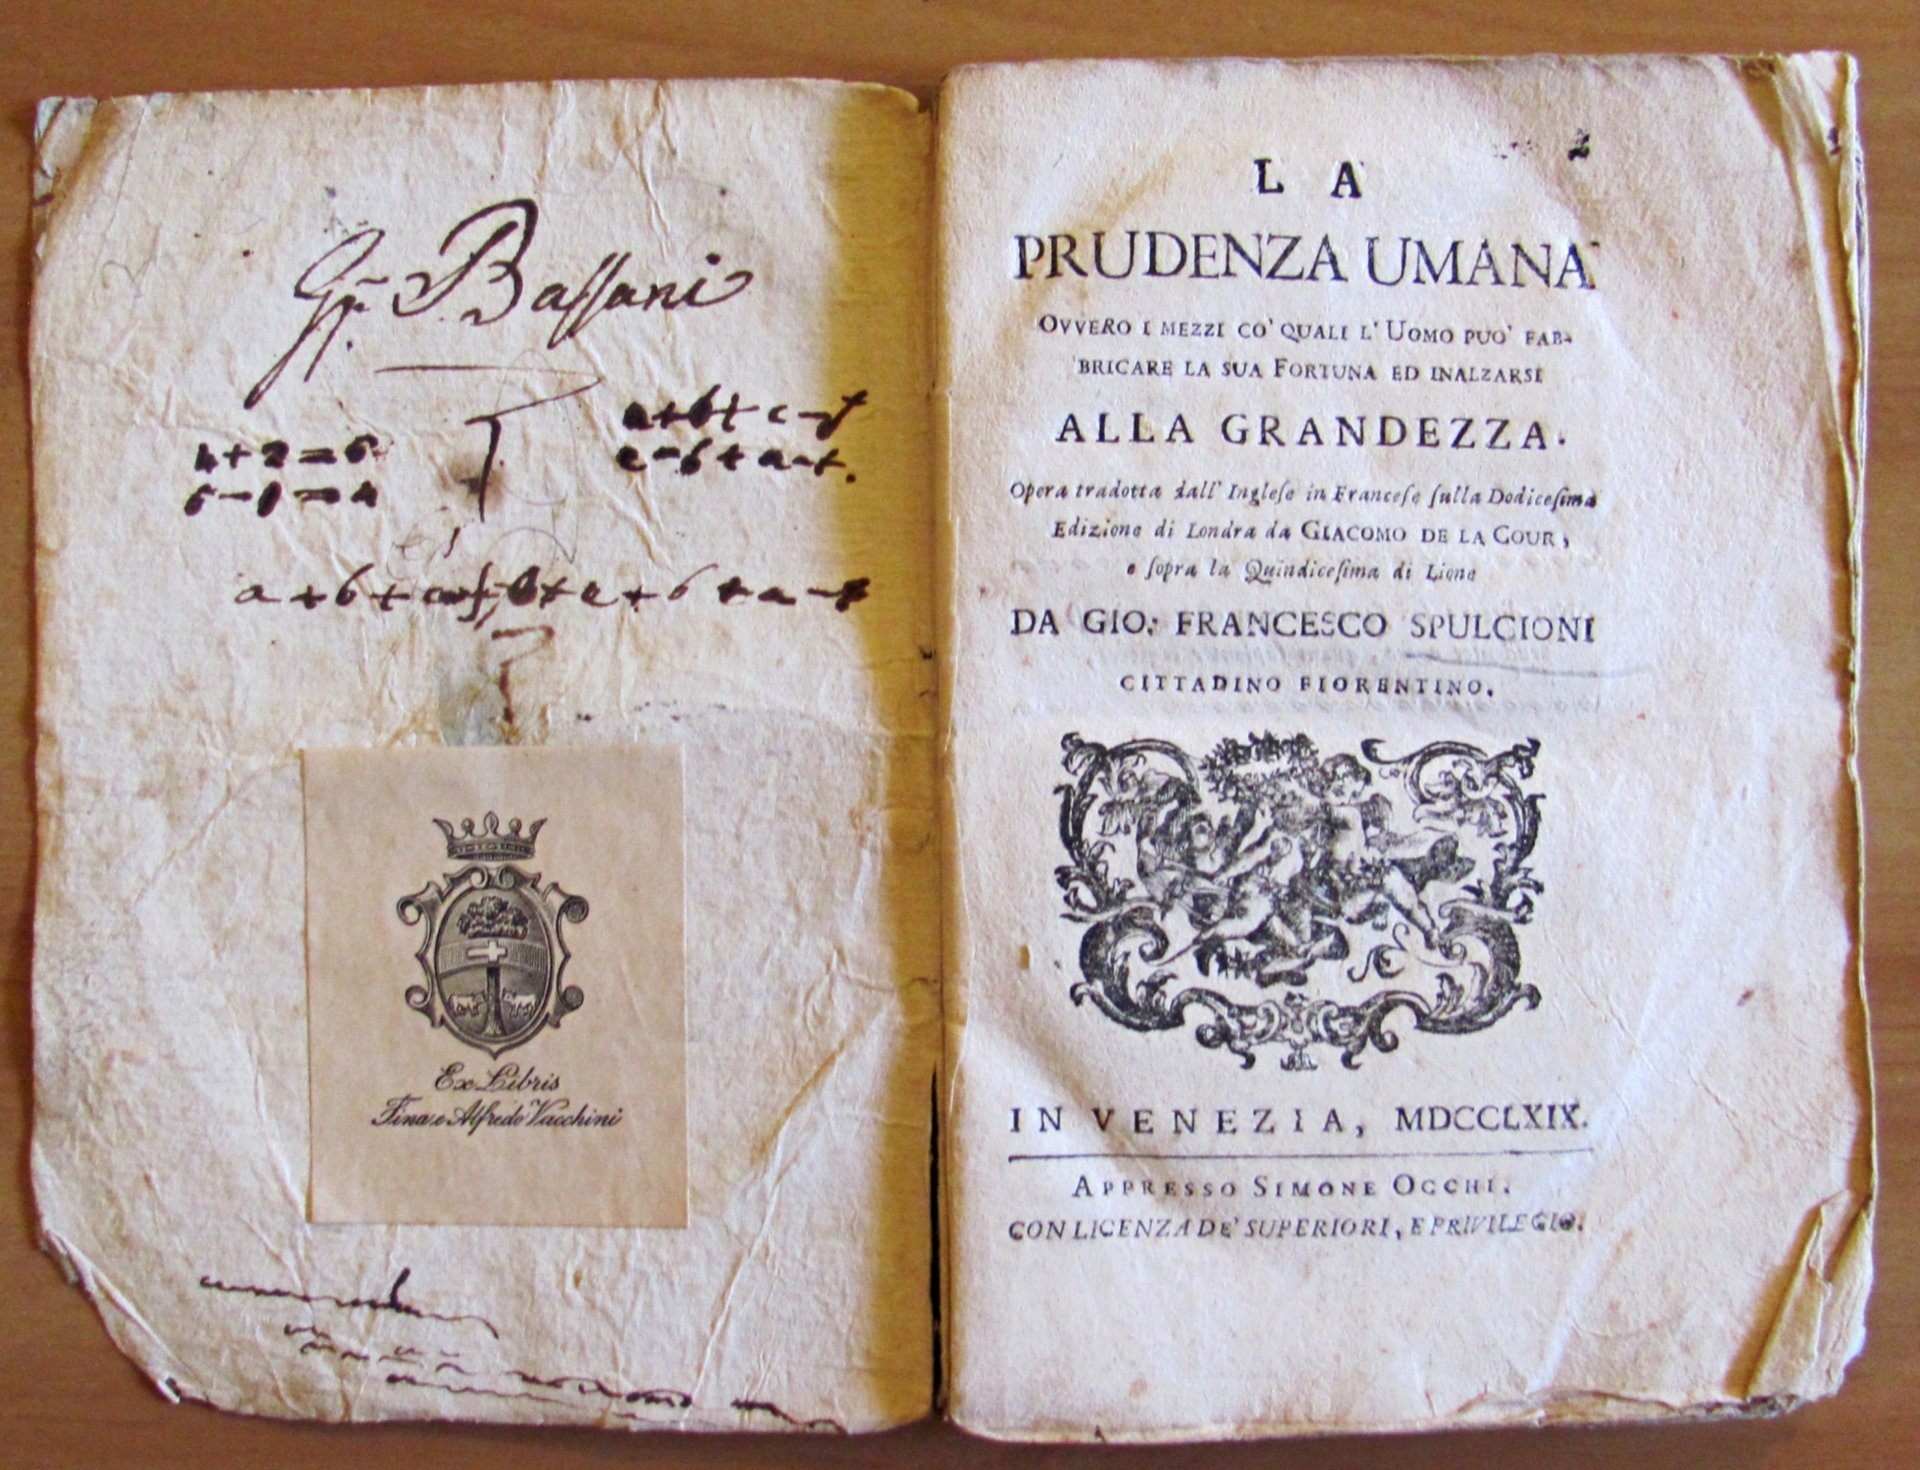 Bassani
4+2=6
5-1=4
a+b+c-f
c-b+a-f.
Ex Libris
Fina e Alfredo Vacchini
LA
PRUDENZA UMANA
OVVERO I MEZZI CO' QUALI L' UOMO PUO' FAB-
BRICARE LA SUA FORTUNA ED INALZARSI
ALLA GRANDEZZA.
Opera tradotta dall' Inglese in Francese sulla Dodicesima
Edizione di Londra da GIACOMO DE LA COUR,
e sopra la Quindicesima di Lione
DA GIO: FRANCESCO SPULCIONI
CITTADINO FIORENTINO.
IN VENEZIA, MDCCLXIX.
APPRESSO SIMONE OCCHI.
CON LICENZA DE' SUPERIORI, E PRIVILEGIO.